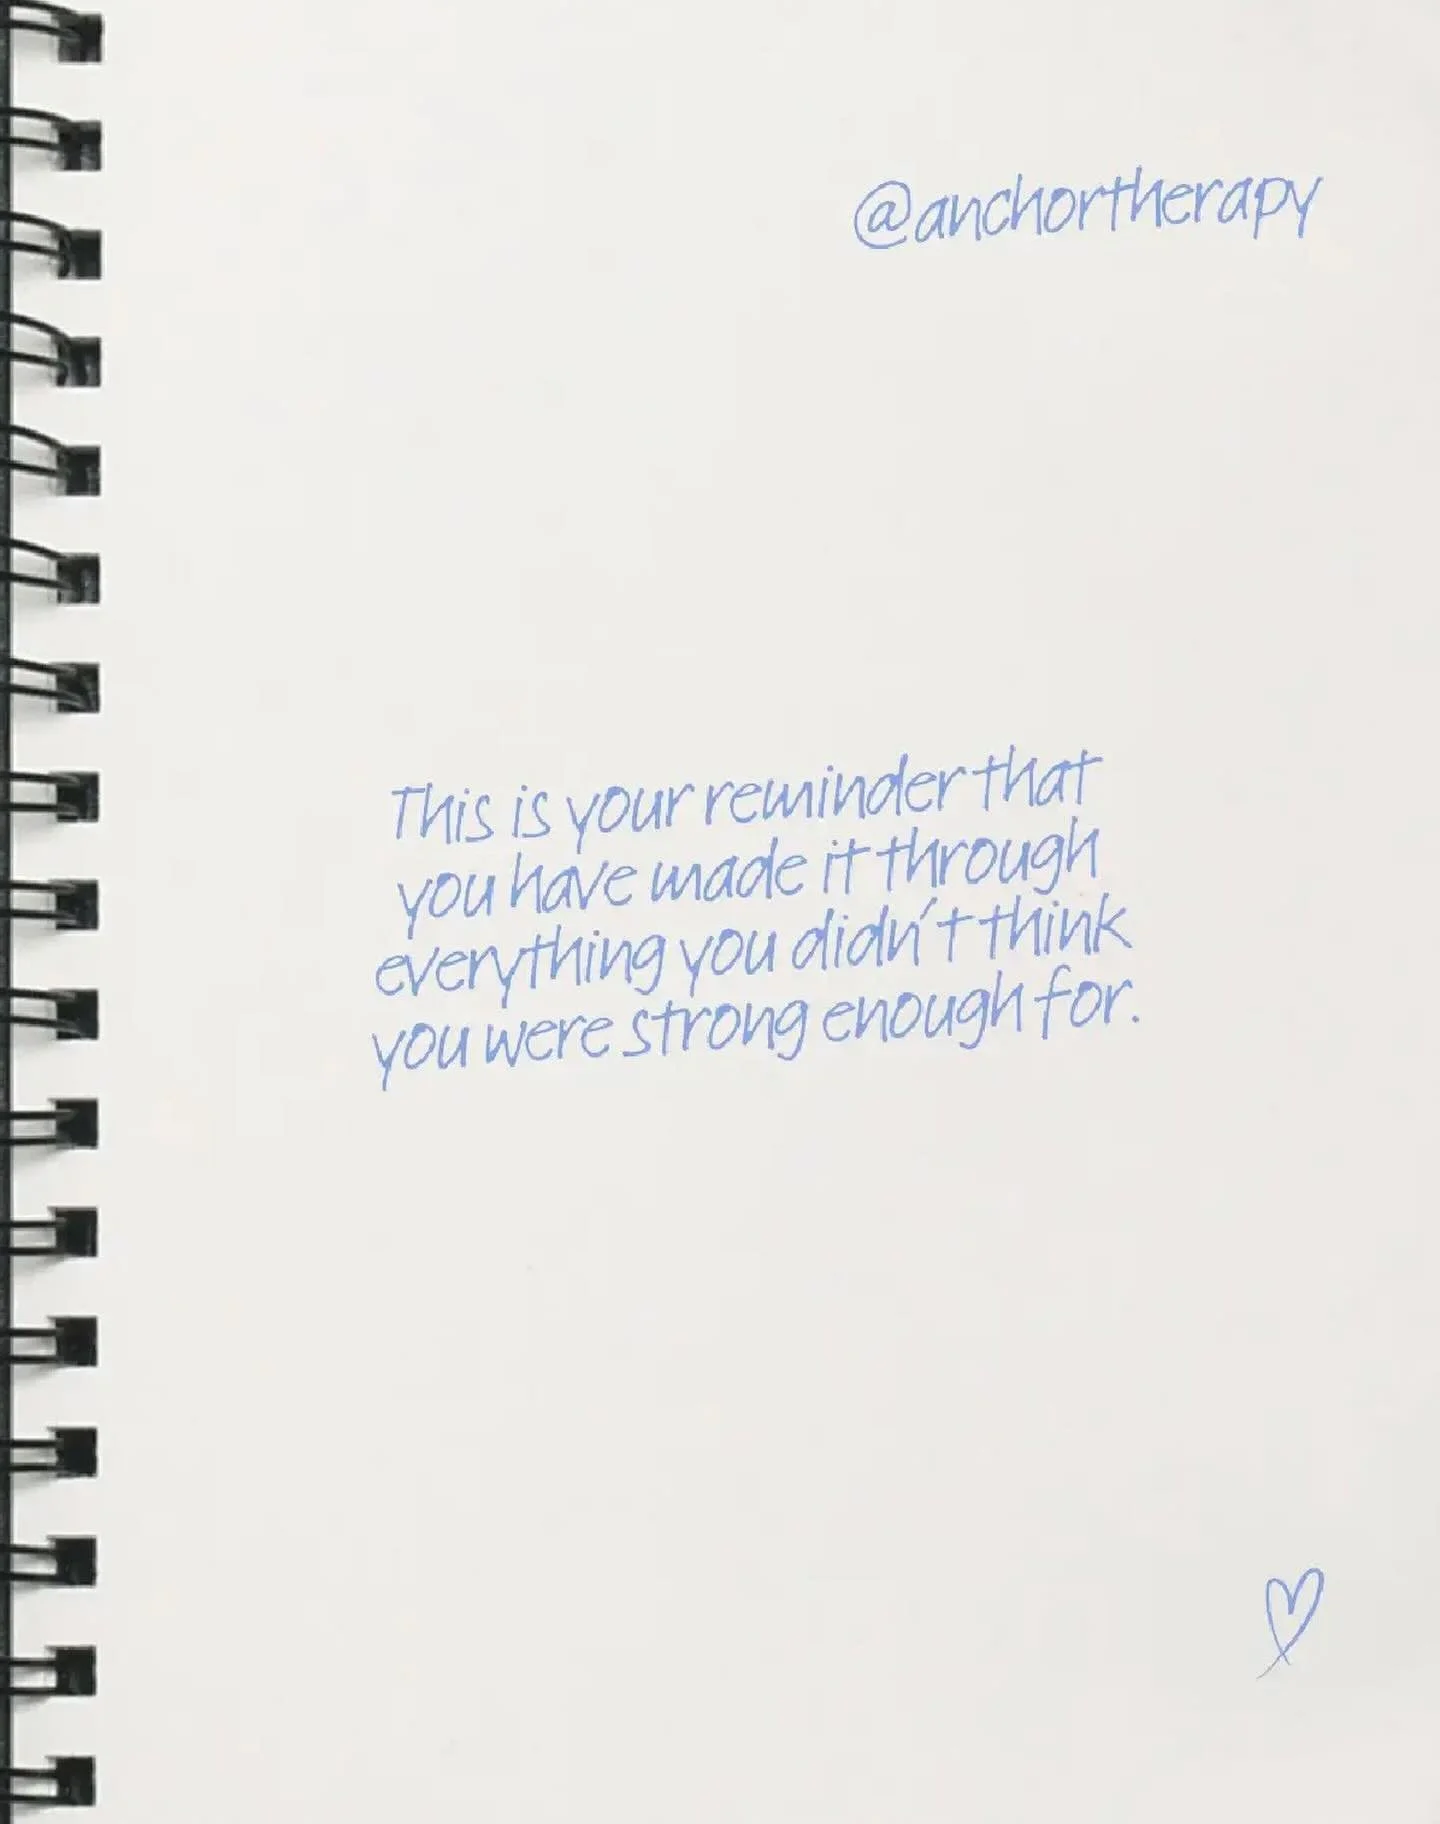 @anchortherapy
This is your reminder that
you have made it through
everything you didn't think
you were strong enough for.